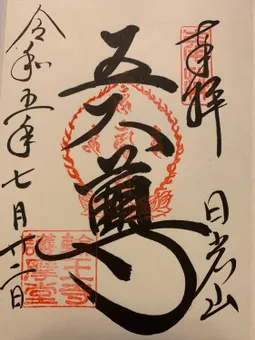 奉拝
日光山
五大尊
令和五年七月廿二日
輪王寺
護摩堂